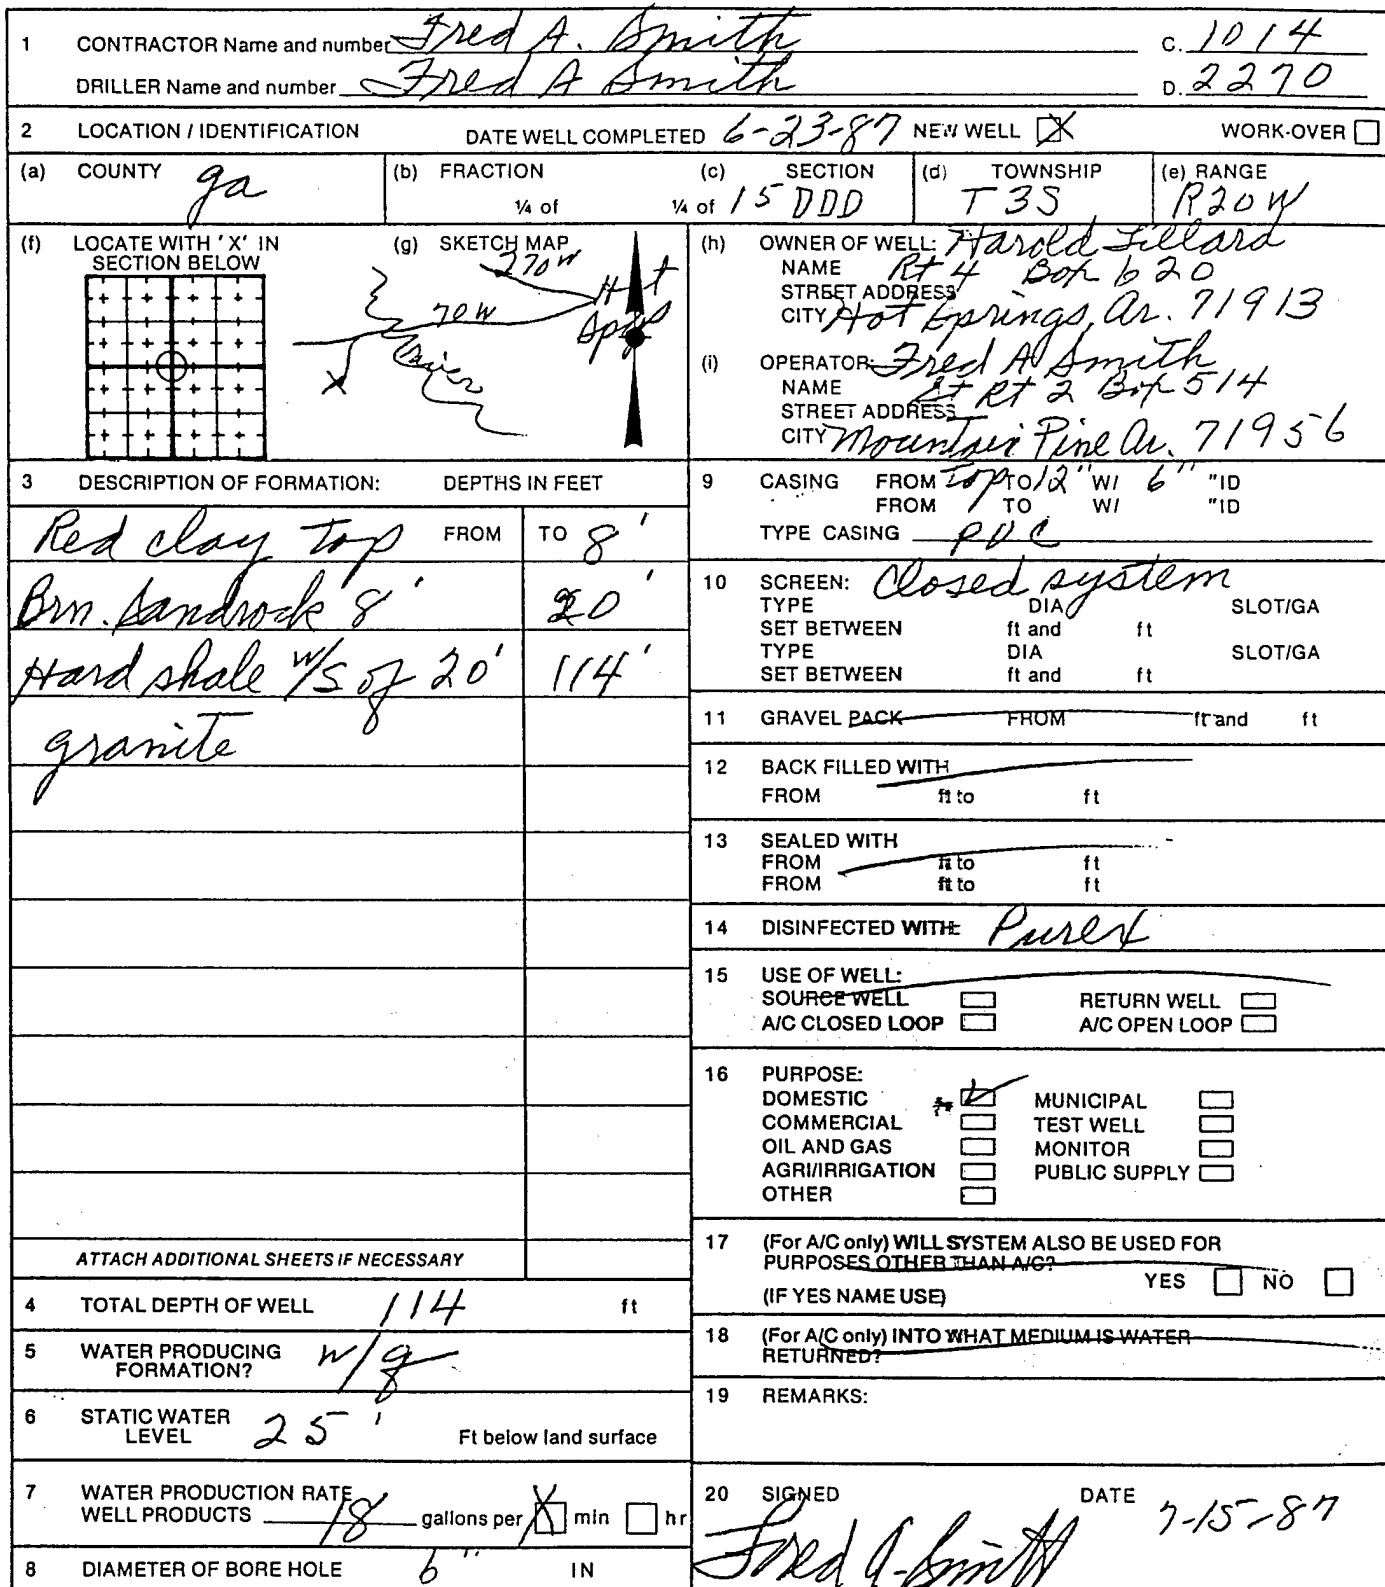 1 CONTRACTOR Name and number Fred A. Smith C. 1014
DRILLER Name and number Fred A Smith D. 2270
2 LOCATION / IDENTIFICATION DATE WELL COMPLETED 6-23-87 NEW WELL X WORK-OVER
(a) COUNTY ga (b) FRACTION ¼ of ¼ of (c) SECTION 15 DDD (d) TOWNSHIP T 3S (e) RANGE R20W
(f) LOCATE WITH 'X' IN SECTION BELOW
(g) SKETCH MAP
270 W
70 W
Hot
Spgs
X
(h) OWNER OF WELL: Harold
NAME Rt 4 Box 620
STREET ADDRESS
CITY Hot Springs, Ar. 71913
(i) OPERATOR: Fred A Smith
NAME Rt 2 Box 514
STREET ADDRESS
CITY Mountain Pine Ar. 71956
3 DESCRIPTION OF FORMATION: DEPTHS IN FEET
Red clay top FROM TO 8'
Brn. Sandrock 8' 20'
Hard shale w/s of 20' 114'
granite
ATTACH ADDITIONAL SHEETS IF NECESSARY
4 TOTAL DEPTH OF WELL 114 ft
5 WATER PRODUCING FORMATION? w/g
6 STATIC WATER LEVEL 25' Ft below land surface
7 WATER PRODUCTION RATE
WELL PRODUCTS 18 gallons per X min hr
8 DIAMETER OF BORE HOLE 6" IN
9 CASING FROM Top TO 12" W/ 6" "ID
FROM TO W/ "ID
TYPE CASING PVC
10 SCREEN: Closed system
TYPE DIA SLOT/GA
SET BETWEEN ft and ft
TYPE DIA SLOT/GA
SET BETWEEN ft and ft
11 GRAVEL PACK FROM ft and ft
12 BACK FILLED WITH
FROM ft to ft
13 SEALED WITH
FROM ft to ft
FROM ft to ft
14 DISINFECTED WITH: Purex
15 USE OF WELL:
SOURCE WELL RETURN WELL
A/C CLOSED LOOP A/C OPEN LOOP
16 PURPOSE:
DOMESTIC MUNICIPAL
COMMERCIAL TEST WELL
OIL AND GAS MONITOR
AGRI/IRRIGATION PUBLIC SUPPLY
OTHER
17 (For A/C only) WILL SYSTEM ALSO BE USED FOR
PURPOSES OTHER THAN A/C?
YES NO
(IF YES NAME USE)
18 (For A/C only) INTO WHAT MEDIUM IS WATER
RETURNED?
19 REMARKS:
20 SIGNED DATE 7-15-87
Fred A. Smith